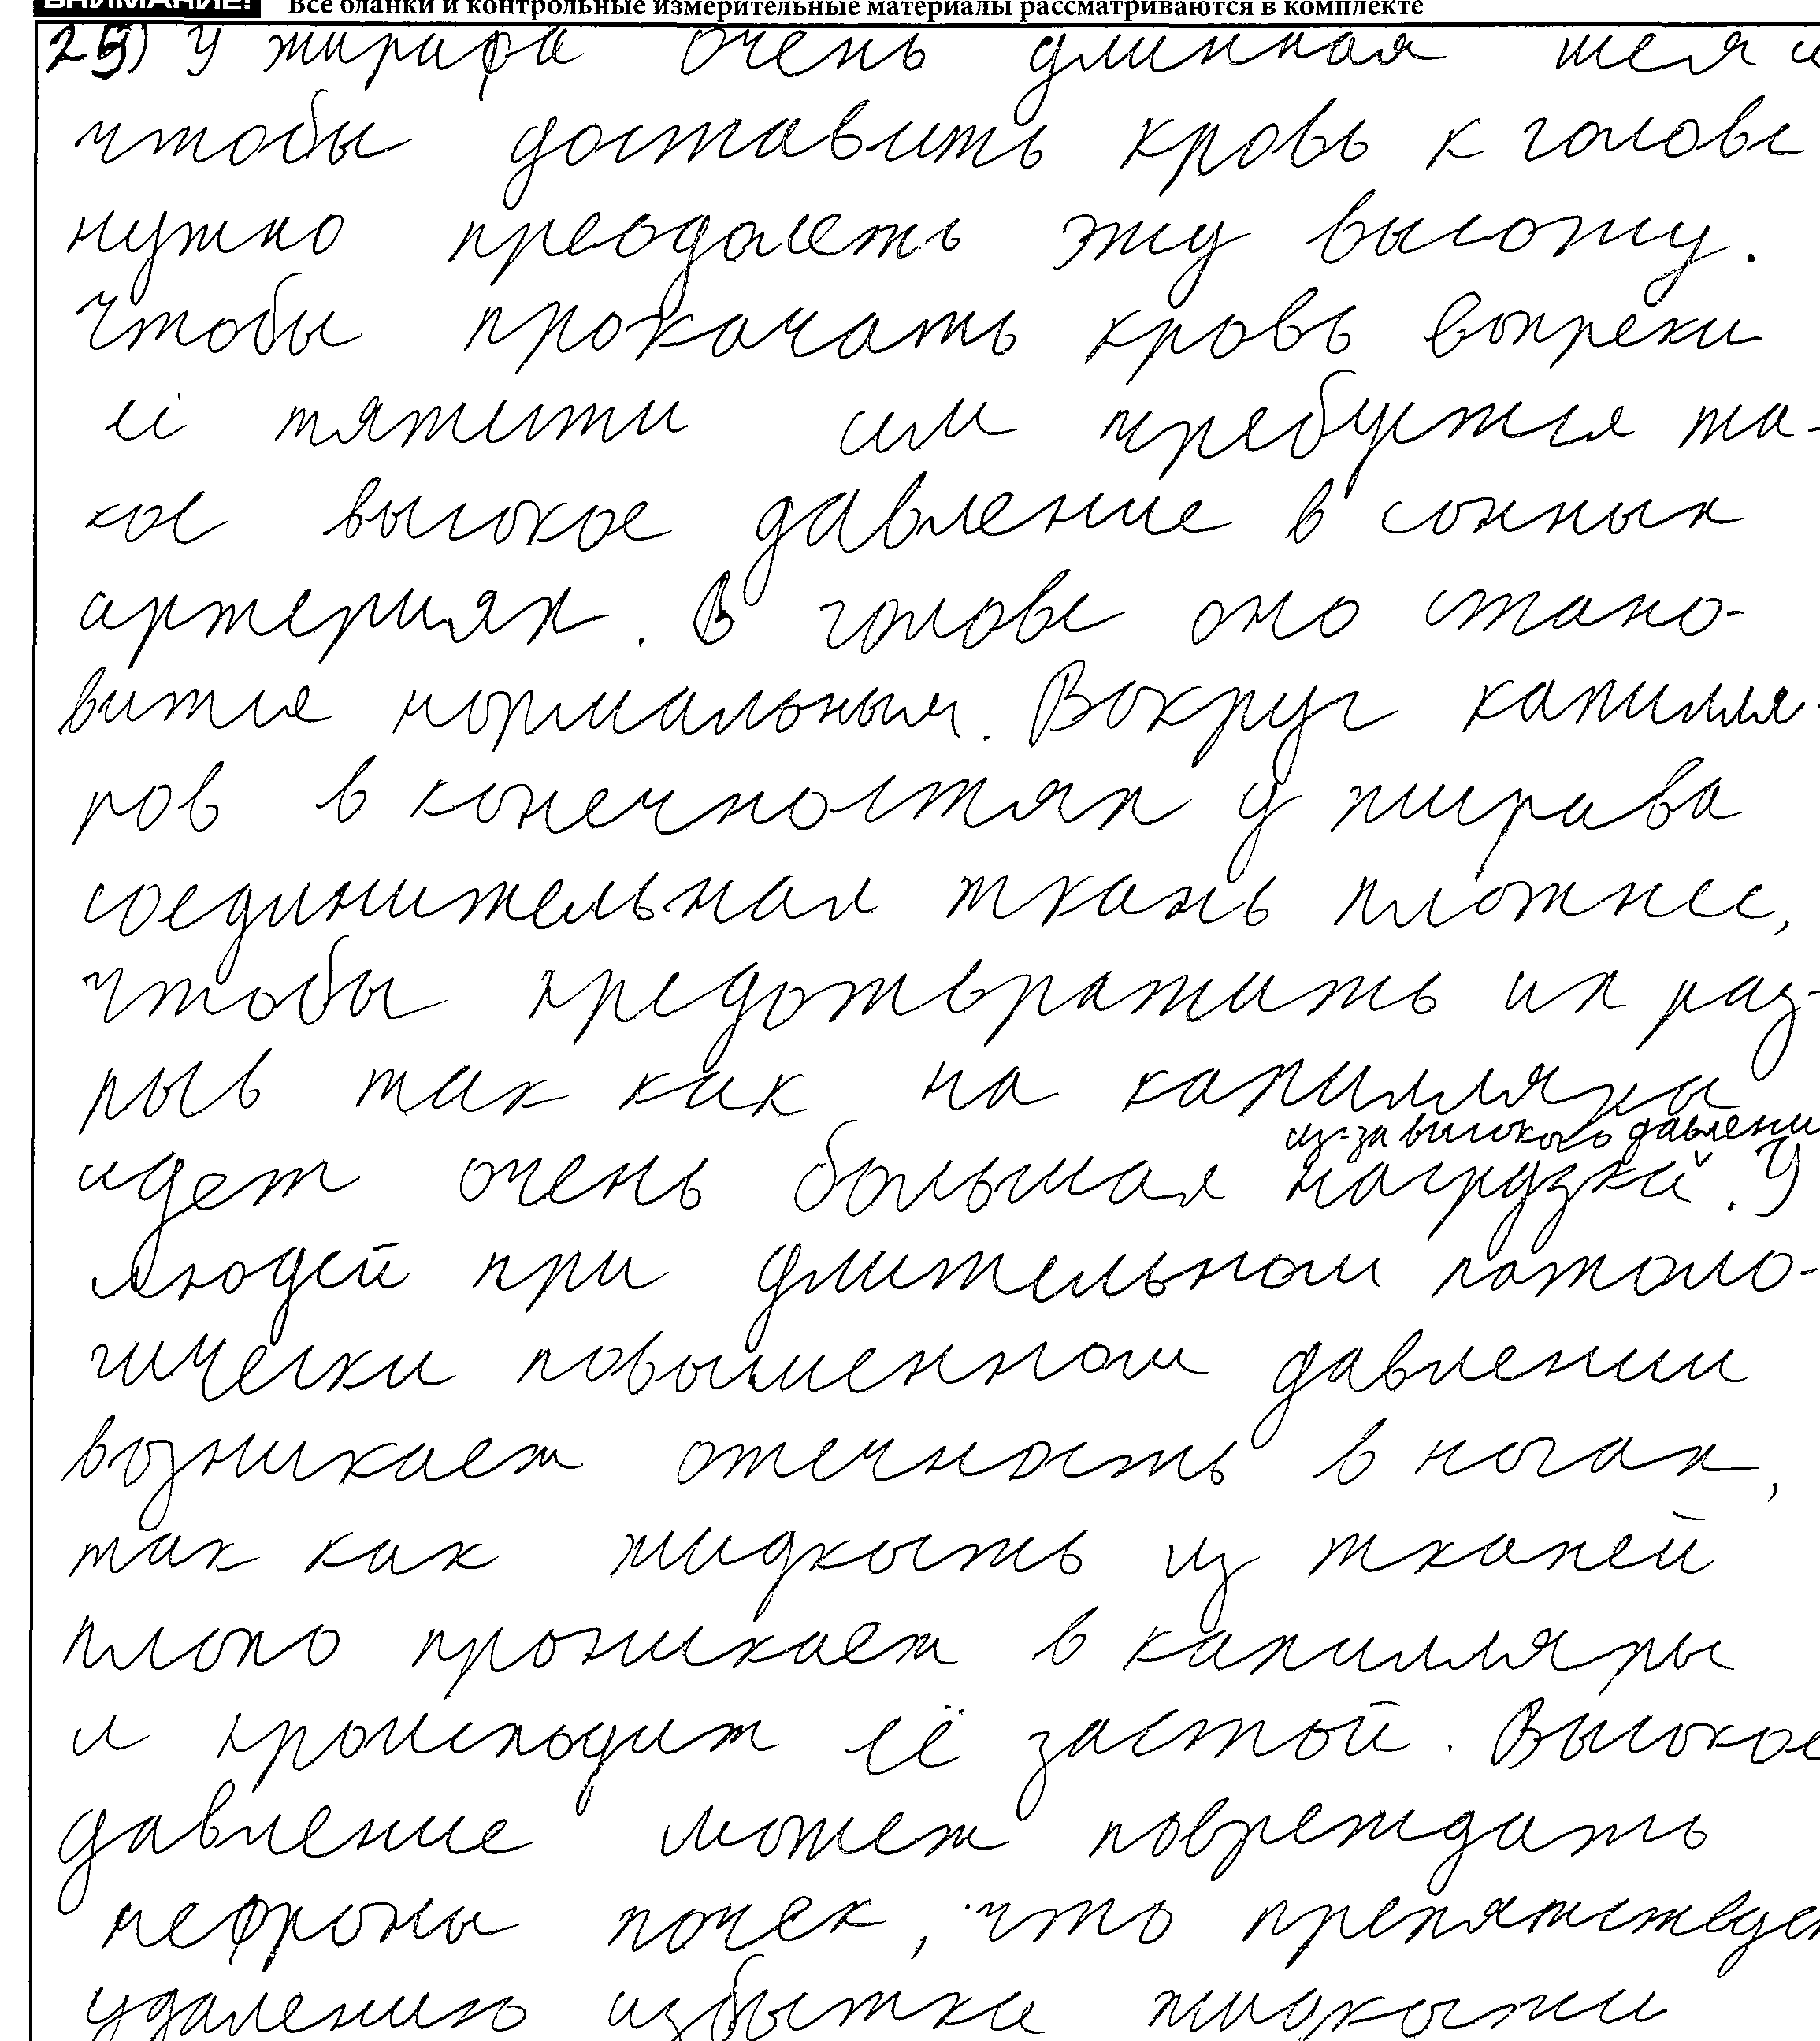 ВНИМАНИЕ! Все бланки и контрольные измерительные материалы рассматриваются в комплекте
25) У жирафа очень длинная шея и
чтобы доставить кровь к голове
нужно преодалеть эту высоту.
Чтобы прокачать кровь вопреки
её тяжести им требуется та-
кое высокое давление в сонных
артериях. В голове оно стано-
вится нормальным. Вокруг капилля-
ров в конечностях у жирава
соединительная ткань плотнее,
чтобы предотвратить их раз-
рыв так как на капилляры
из-за высокого давлени
идет очень большая нагрузка. У
людей при длительном патоло-
гически повышенном давлении
возникает отечность в ногах,
так как жидкость из тканей
плохо проникает в капилляры
и происходит её застой. Высокое
давление может повреждать
нефроны почек, что препятствует
удалению избытка жидкости